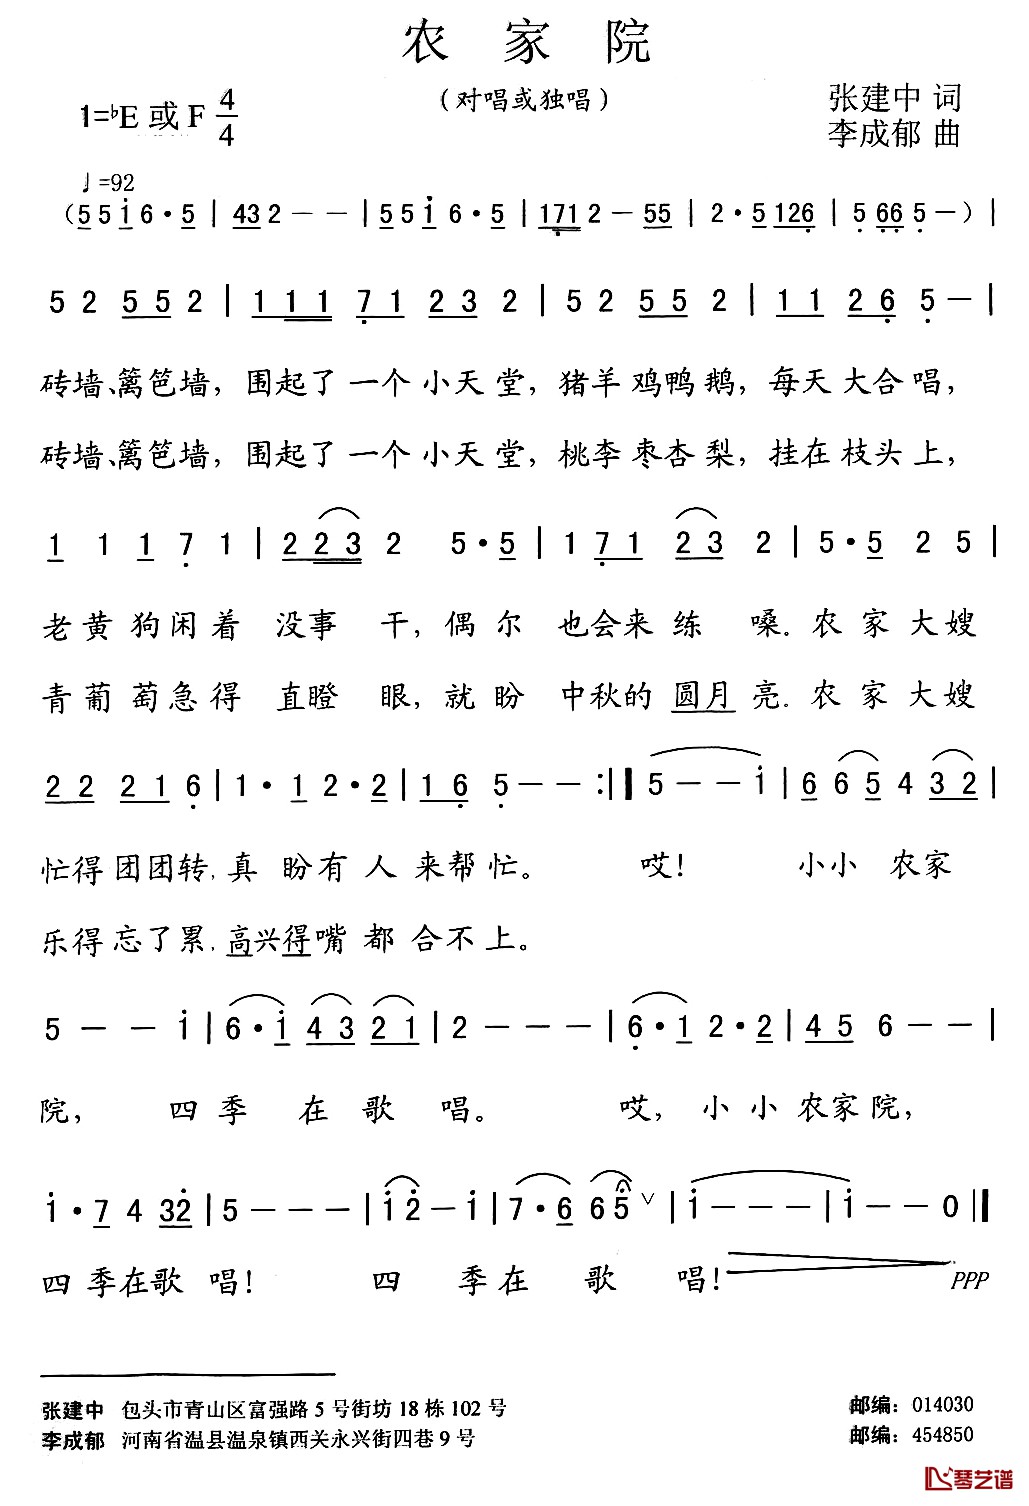 农家院
（对唱或独唱）
1=♭E 或 F 4/4
张建中 词
李成郁 曲
♩=92
（5 5 i 6·5 | 432 2 - - | 5 5 i 6·5 | 171 2 - 55 | 2·5 126 | 5 66 5 - ）|
5 2 5 5 2 | 1 1 1 7 1 2 3 2 | 5 2 5 5 2 | 1 1 2 6 5 - |
砖墙、篱笆墙，围起了一个小天堂，猪羊鸡鸭鹅，每天大合唱，
砖墙、篱笆墙，围起了一个小天堂，桃李枣杏梨，挂在枝头上，
1 1 1 7 1 | 2 2 3 2 5·5 | 1 7 1 2 3 2 | 5·5 2 5 |
老黄狗闲着没事干，偶尔也会来练嗓．农家大嫂
青葡萄急得直瞪眼，就盼中秋的圆月亮．农家大嫂
2 2 2 1 6 | 1·1 2·2 | 1 6 5 - - :‖ 5 - - i | 6 6 5 4 3 2 |
忙得团团转，真盼有人来帮忙。 哎！ 小小农家
乐得忘了累，高兴得嘴都合不上。
5 - - i | 6·i 4 3 2 1 | 2 - - - | 6·1 2·2 | 4 5 6 - - |
院， 四季在歌唱。 哎，小小农家院，
i·7 4 3 2 | 5 - - - | i 2 - i | 7·6 6 5 ∨ | i - - - | i - - 0 ‖
四季在歌唱！ 四季在歌唱！ PPP
张建中 包头市青山区富强路5号街坊18栋102号 邮编：014030
李成郁 河南省温县温泉镇西关永兴街四巷9号 邮编：454850
琴艺谱